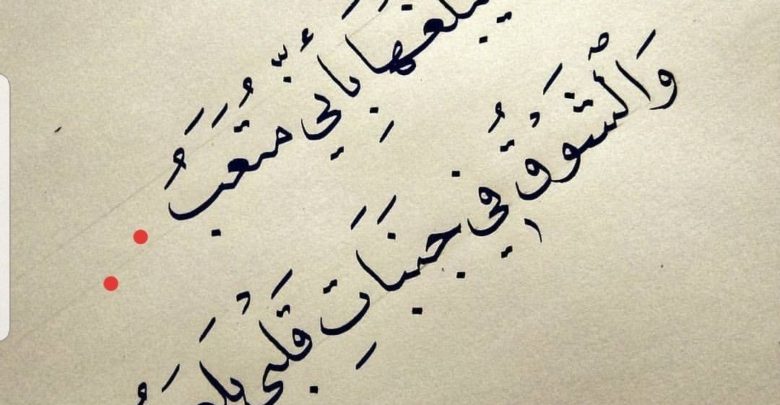 يبلغها بِأَنّي مُتْعَبُ
وَٱلشَّوْقُ فِي جَنَبَاتِ قَلْبي